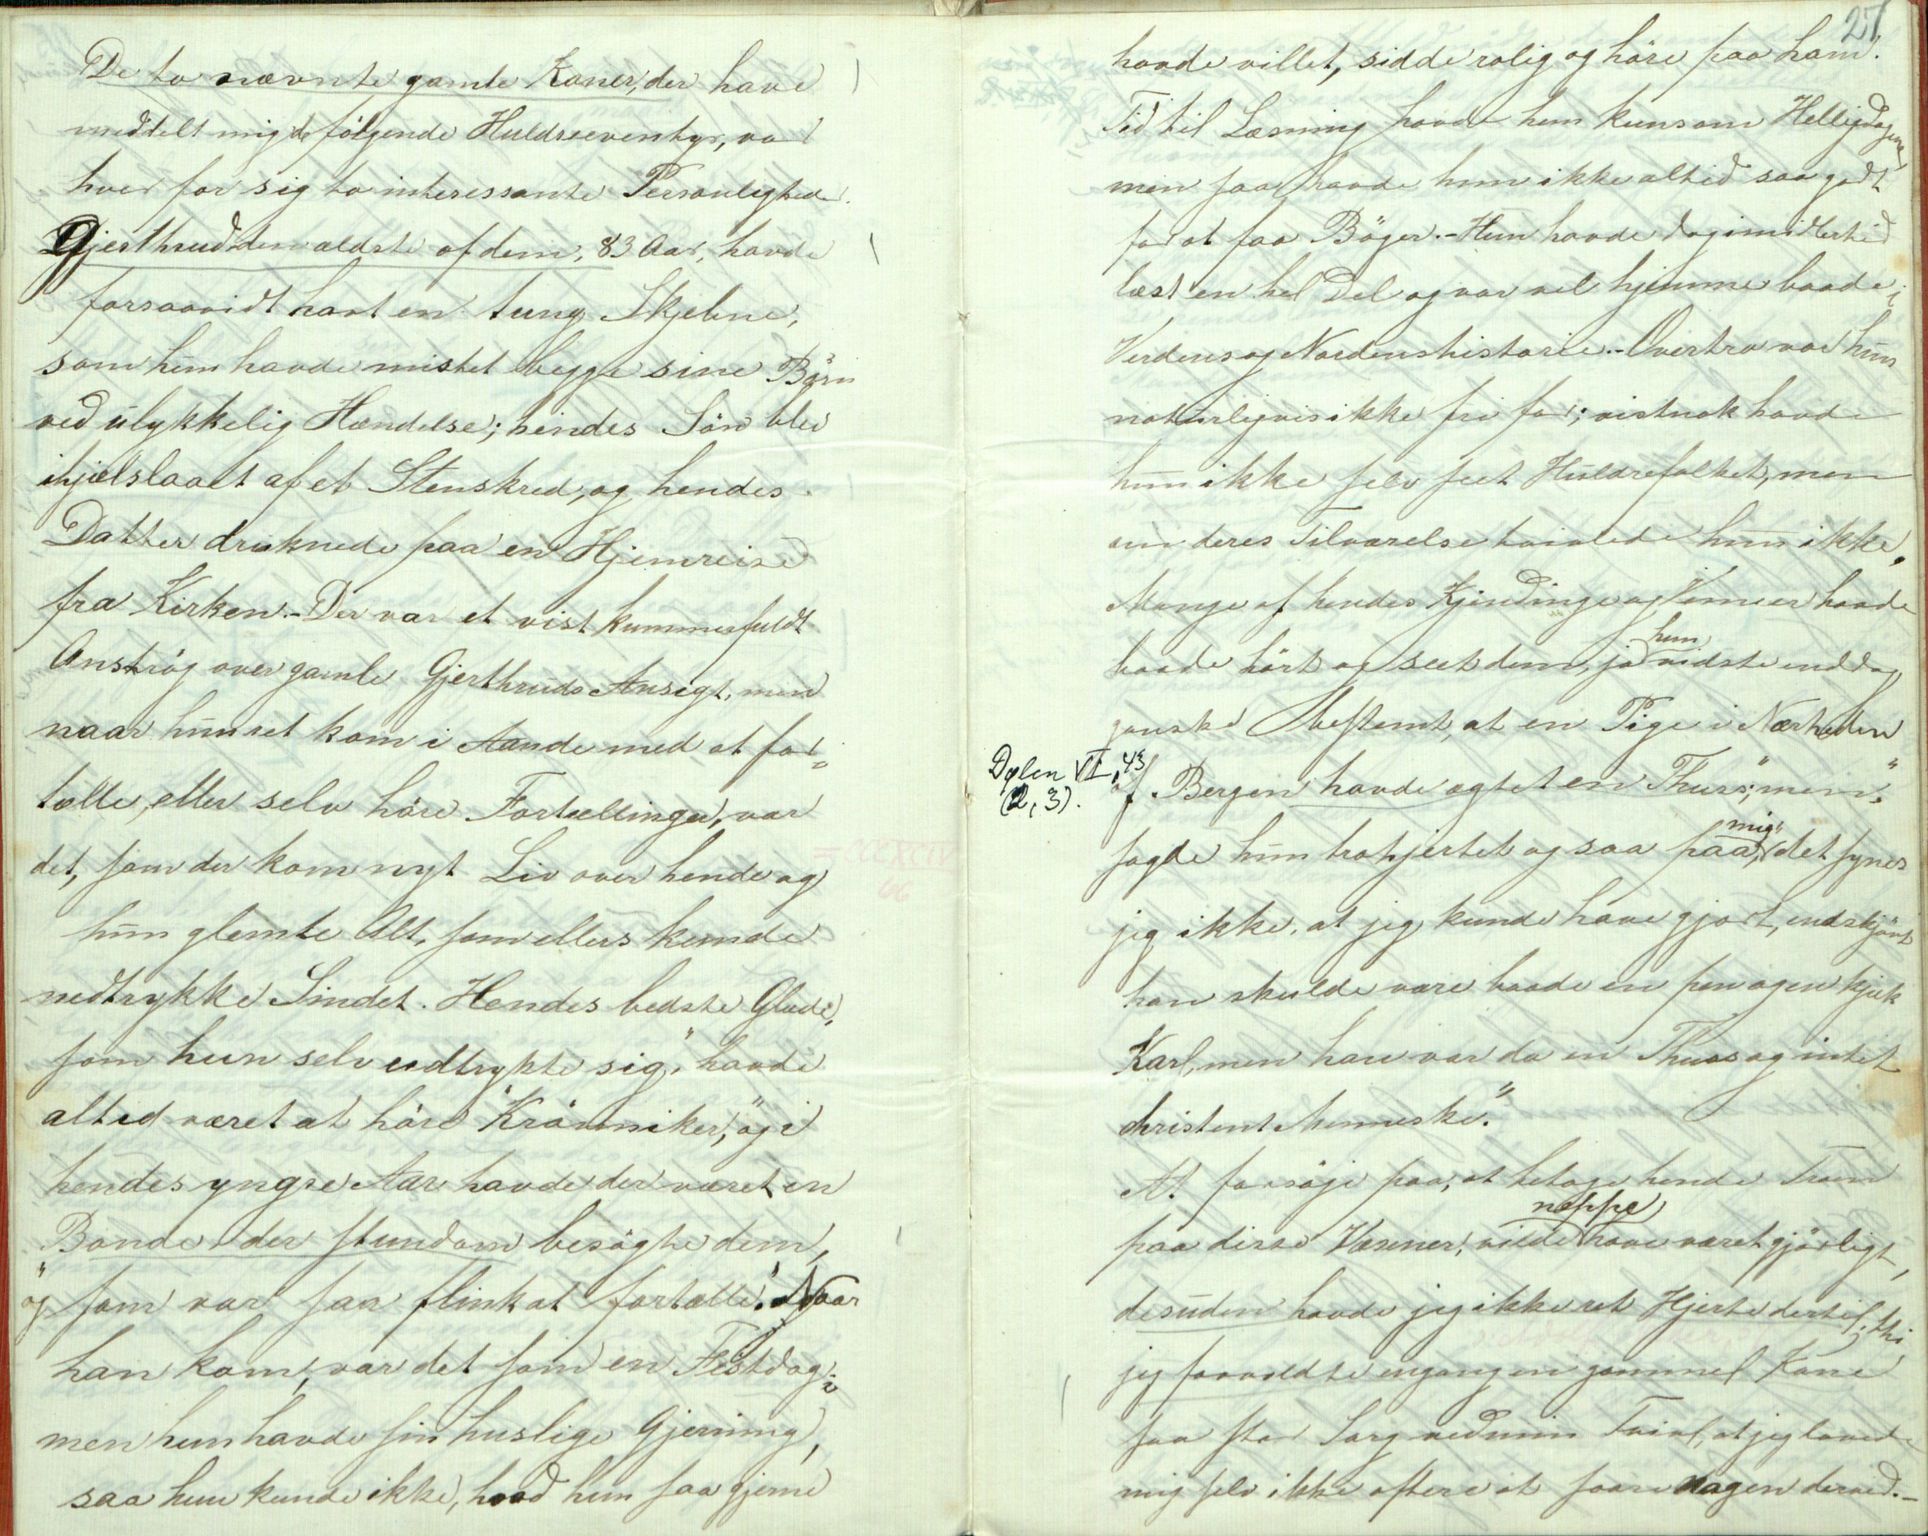 De to nævnte gamle Koner, der have
meddelt mig de følgende Huldreeventyr, var
hver for sig to interessante Personligheder.
Gjerthrud den ældste af dem, 83 Aar, havde
forsaavidt havt en tung Skjebne,
som hun havde mistet begge sine Börn
ved ulykkelig Hændelse; hendes Sön blev
ihjælslaaet af et Stenskred, og hendes
Datter druknede paa en Hjemreise
fra Kirken. - Der var et vist kummerfuldt
Anströg over gamle Gjerthruds Ansigt, men
naar hun ret kom i Aande med at for=
tælle, eller selv höre Fortællinger, var
det, som der kom nyt Liv over hende og
hun glemte Alt, som ellers kunde
nedtrykke Sindet. Hendes bedste Glæde,
som hun selv udtrykte sig, "havde
altid været at höre Krönniker," og i
hendes yngre Aar havde der været en
Bonde, der stundom besögte dem,
og "som var saa flink at fortælle". Naar
han kom, var det som en Festdag;
men hun havde sin huslige Gjerning,
saa hun kunde ikke, hvad hun saa gjerne
27
havde villet, sidde rolig og höre paa ham.
Tid til Læsning havde hun kun om Helligdagene,
men saa havde hun ikke altid saa godt
for at faa Böger. - Hun havde dog imidlertid
læst en hel Del og var vel hjemme baade i
Verdens og Nordens historie. - Overtro var hun
naturligvis ikke fri for; vistnok havde
hun ikke selv seet Huldrefolket, men
om deres Tilværelse tvivlede hun ikke.
Mange af hendes Kjendinge og Venner havde
baade hört og seet dem, ja hun vidste endog
ganske bestemt, at en Pige i Nærheden
Dølen VI, 43
(2, 3).
af Bergen havde ægtet en "Thurs", "men",
sagde hun trohjertet og saa paa mig, "det synes
jeg ikke, at jeg kunde have gjort, endskjönt
han skulde være baade en pen og en kjæk
Karl, men han var da en Thurs og intet
christent Menneske".
At forsöge paa, at betage hende Troen
paa disse Væsener, vilde neppe have været gjörligt,
desuden havde jeg ikke ret Hjerte dertil, thi
jeg forvoldte engang en gammel Kone
saa stor Sorg ved min Tvivl, at jeg lovede
mig selv ikke oftere at saare nogen derved. -
= CCCXCIV
66